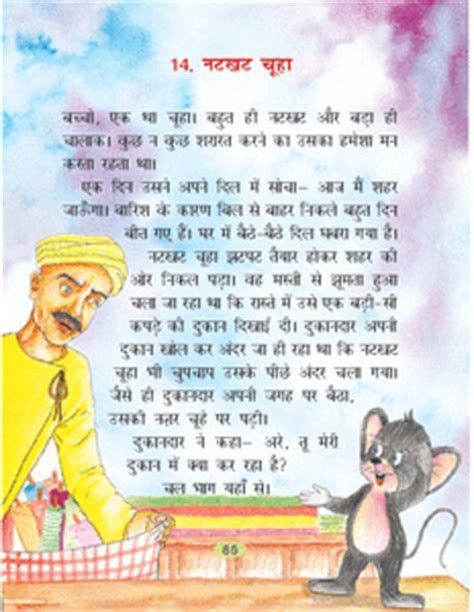 14. नटखट चूहा
बच्चो, एक था चूहा। बहुत ही नटखट और बड़ा ही
चालाक। कुछ न कुछ शरारत करने का उसका हमेशा मन
करता रहता था।
एक दिन उसने अपने दिल में सोचा– आज मैं शहर
जाऊँगा। बारिश के कारण बिल से बाहर निकले बहुत दिन
बीत गए हैं। घर में बैठे-बैठे दिल घबरा गया है।
नटखट चूहा झटपट तैयार होकर शहर की
ओर निकल पड़ा। वह मस्ती से झूमता हुआ
चला जा रहा था कि रास्ते में उसे एक बड़ी-सी
कपड़े की दुकान दिखाई दी। दुकानदार अपनी
दुकान खोल कर अंदर जा ही रहा था कि नटखट
चूहा भी चुपचाप उसके पीछे अंदर चला गया।
जैसे ही दुकानदार अपनी जगह पर बैठा,
उसकी नज़र चूहे पर पड़ी।
दुकानदार ने कहा– अरे, तू मेरी
दुकान में क्या कर रहा है?
चल भाग यहाँ से।
85